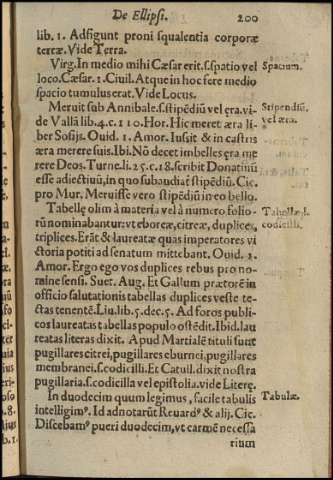 De Ellipsi. 200
lib. 1. Adfigunt proni squalentia corpora
terræ. Vide Terra.
Virg. In medio mihi Cæsar erit. s. spatio vel Spacium.
loco. Cæsar. 1. Ciuil. Atque in hoc fere medio
spacio tumulus erat. Vide Locus.
Meruit sub Annibale. s. stipẽdiũ vel ęra. vi- Stipendiũ.
de Vallã lib. 4. c. 110. Hor. Hic meret æra li- vel æra.
ber Sosijs. Ouid. 1. Amor. Iussit & in castris
æra merere suis. Ibi. Nõ decet imbelles æra me
rere Deos. Turne. li. 25. c. 18. scribit Donatinũ
esse adiectiuũ, in quo subaudiat stipẽdiũ. Cic.
pro Mur. Meruisse vero stipẽdiũ in eo bello.
Tabellę olim à materia vel à numero folio- Tabellæ. l.
rũ nominabantur: vt eboreæ, citreæ, duplices, codicilli.
triplices. Erãt & laureatæ quas imperatores vi
ctoria potiti ad senatum mittebant. Ouid. 1.
Amor. Ergo ego vos duplices rebus pro no-
mine sensi. Suet. Aug. Et Gallum prætorẽ in
officio salutationis tabellas duplices veste te-
ctas tenentẽ. Liu. lib. 5. dec. 5. Ad foros publi-
cos laureatas tabellas populo ostẽdit. Ibid. lau
reatas literas dixit. Apud Martialẽ tituli sunt
pugillares citrei, pugillares eburnei, pugillares
membranei. s. codicilli. Et Catull. dixit nostra
pugillaria. s. codicilla vel epistolia. vide Literę.
In duodecim quum legimus, facile tabulis Tabulæ.
intelligim⁹. Id adnotarũt Reuard⁹ & alij. Cic.
Discebam⁹ pueri duodecim, vt carmẽ necessa
rium